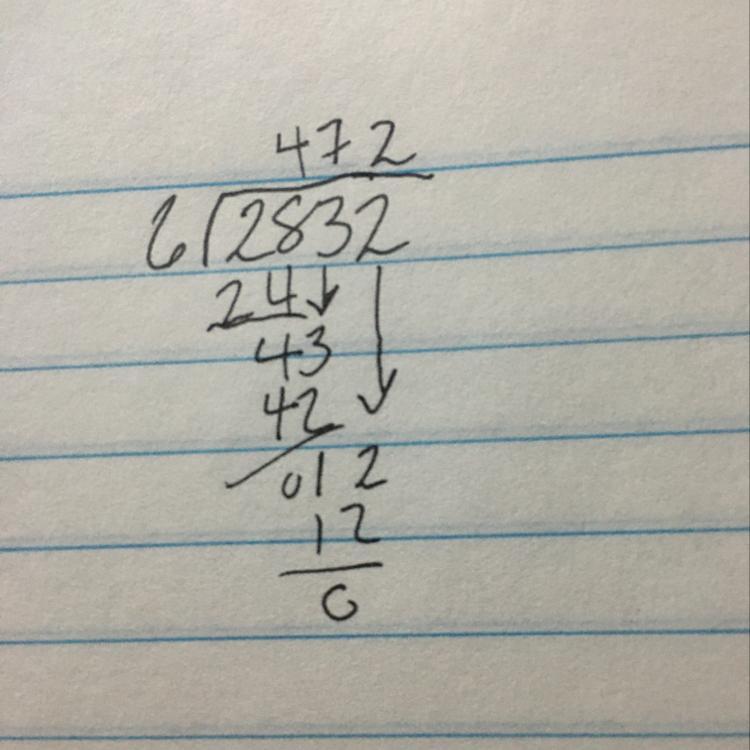 472
6)2832
24
43
42
012
12
0